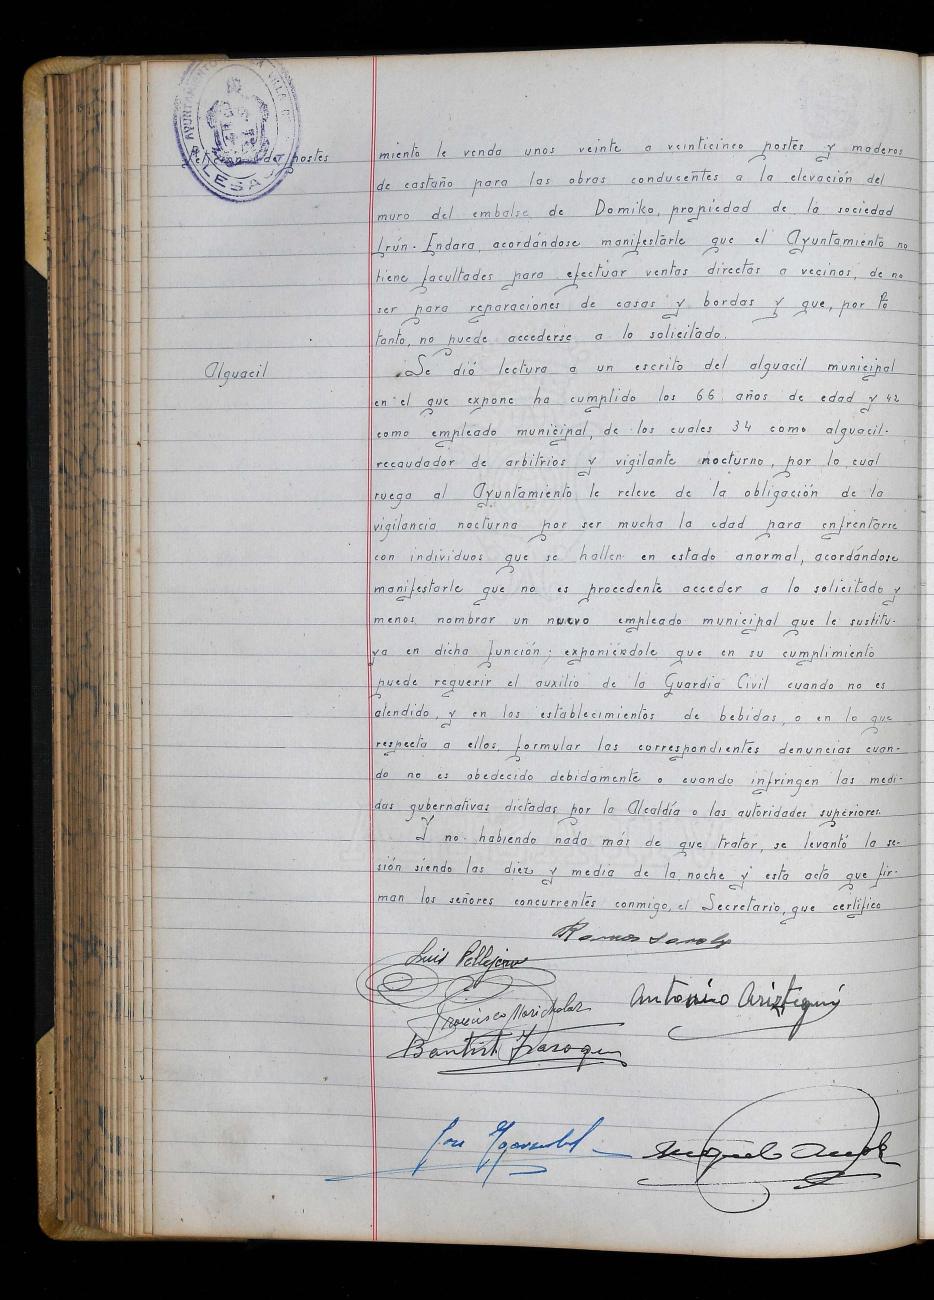 AYUNTAMIENTO VILLA
LESACA
postes
miento le venda unos veinte a veinticinco postes y maderos
de castaño para las obras conducentes a la elevación del
muro del embalse de Domiko, propiedad de la sociedad
Irún-Endara, acordándose manifestarle que el Ayuntamiento no
tiene facultades para efectuar ventas directas a vecinos, de no
ser para reparaciones de casas y bordas y que, por lo
tanto, no puede accederse a lo solicitado.
Alguacil
Se dió lectura a un escrito del alguacil municipal
en el que expone ha cumplido los 66 años de edad y 42
como empleado municipal, de los cuales 34 como alguacil-
recaudador de arbitrios y vigilante nocturno, por lo cual
ruega al Ayuntamiento le releve de la obligación de la
vigilancia nocturna por ser mucha la edad para enfrentarse
con individuos que se hallen en estado anormal, acordándose
manifestarle que no es procedente acceder a lo solicitado y
menos nombrar un nuevo empleado municipal que le sustitu-
ya en dicha función; exponiédole que en su cumplimiento
puede requerir el auxilio de la Guardia Civil cuando no es
atendido, y en los establecimientos de bebidas, o en lo que
respecta a ellos, formular las correspondientes denuncias cuan-
do no es obedecido debidamente o cuando infringen las medi-
das gubernativas dictadas por la Alcaldía o las autoridades superiores.
Y no habiendo nada más de que tratar, se levantó la se-
sión siendo las diez y media de la noche y esta acta que fir-
man los señores concurrentes conmigo, el Secretario, que certifico
Luis Pellejero
Antonio Ariztegui
Francisco Marichalar
Bautist
Miguel